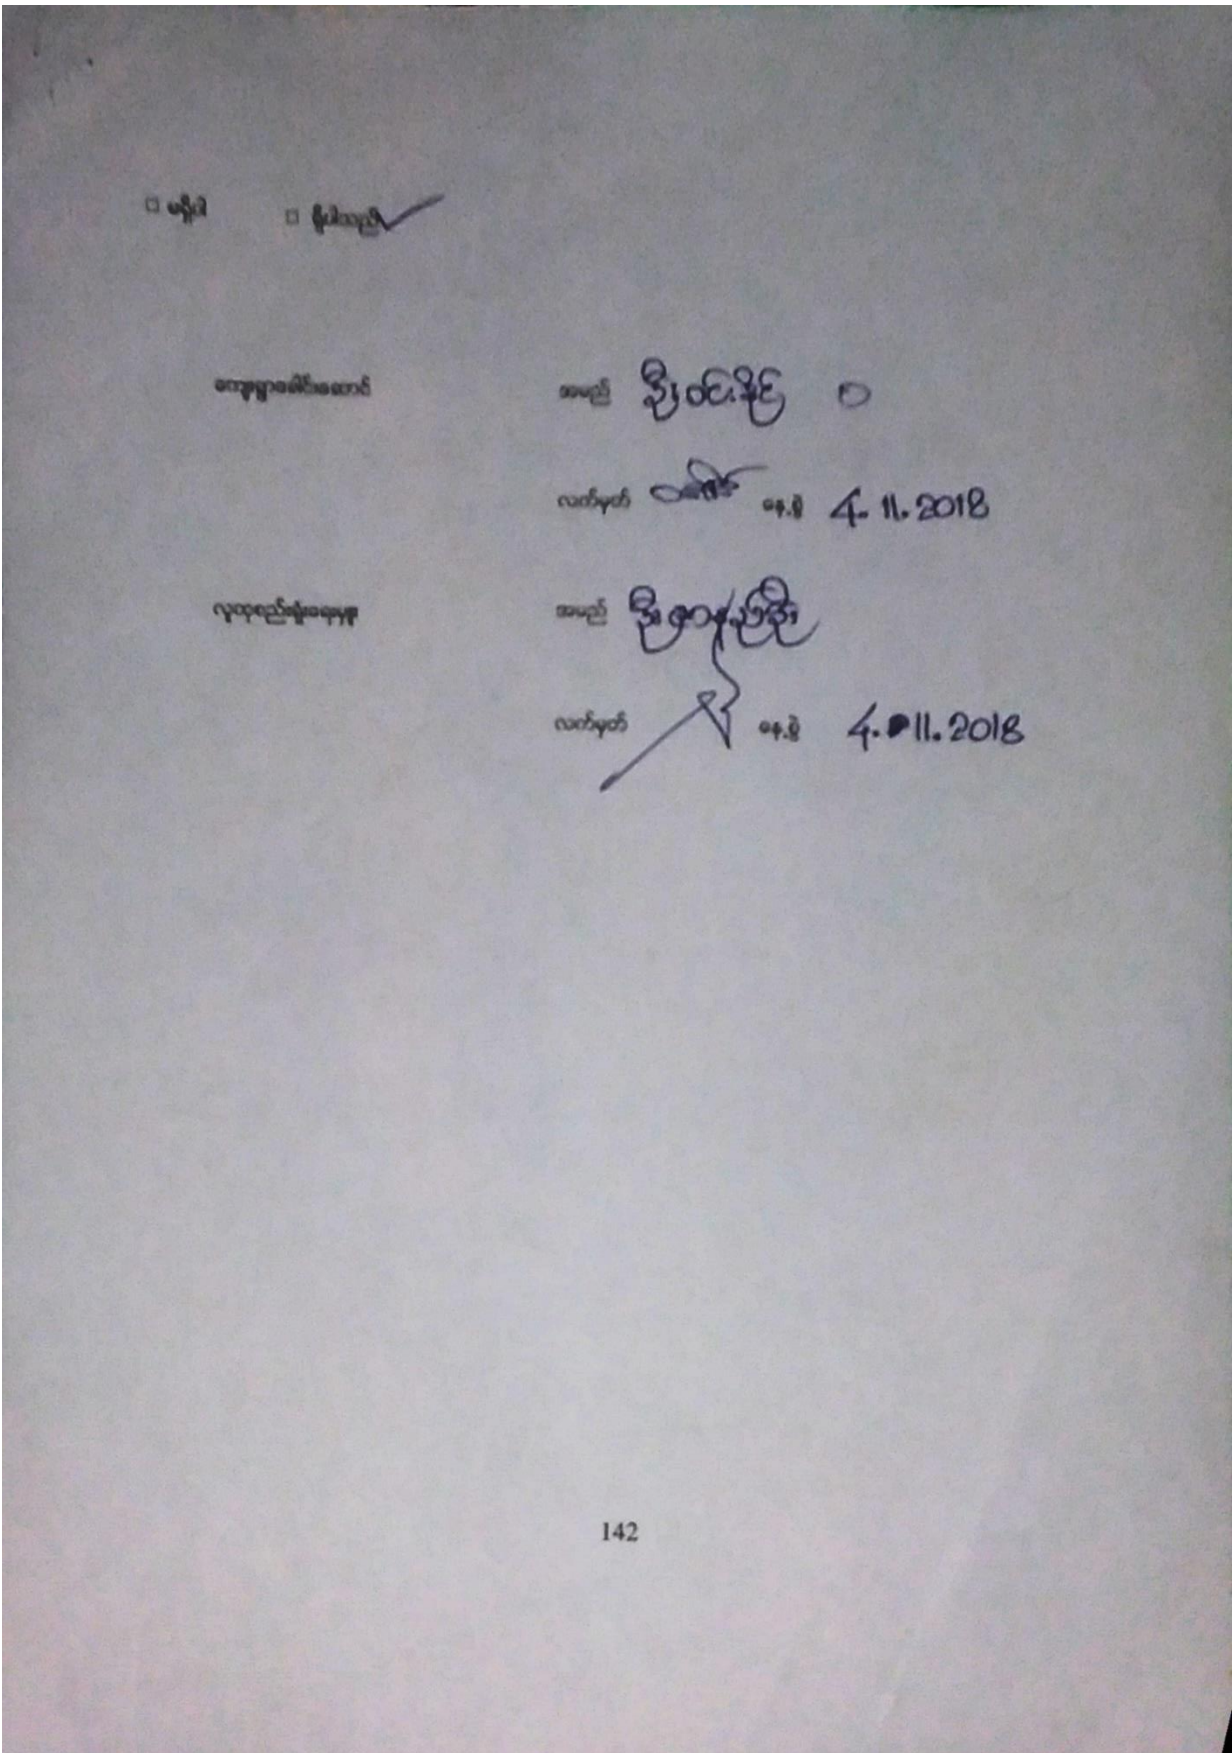 □ မရှိပါ □ ရှိပါသည်
ကျေးရွာခေါင်းဆောင် အမည် ဦးဝင်းနိုင်
လက်မှတ် နေ့စွဲ 4.11.2018
လူထုစည်းရုံးရေးမှူး အမည်
လက်မှတ် နေ့စွဲ 4.11.2018
142